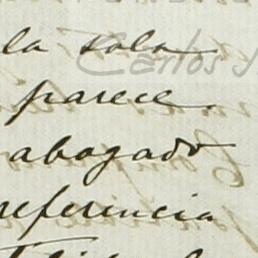 la sola
Carlos
parece.
abogado
referencia